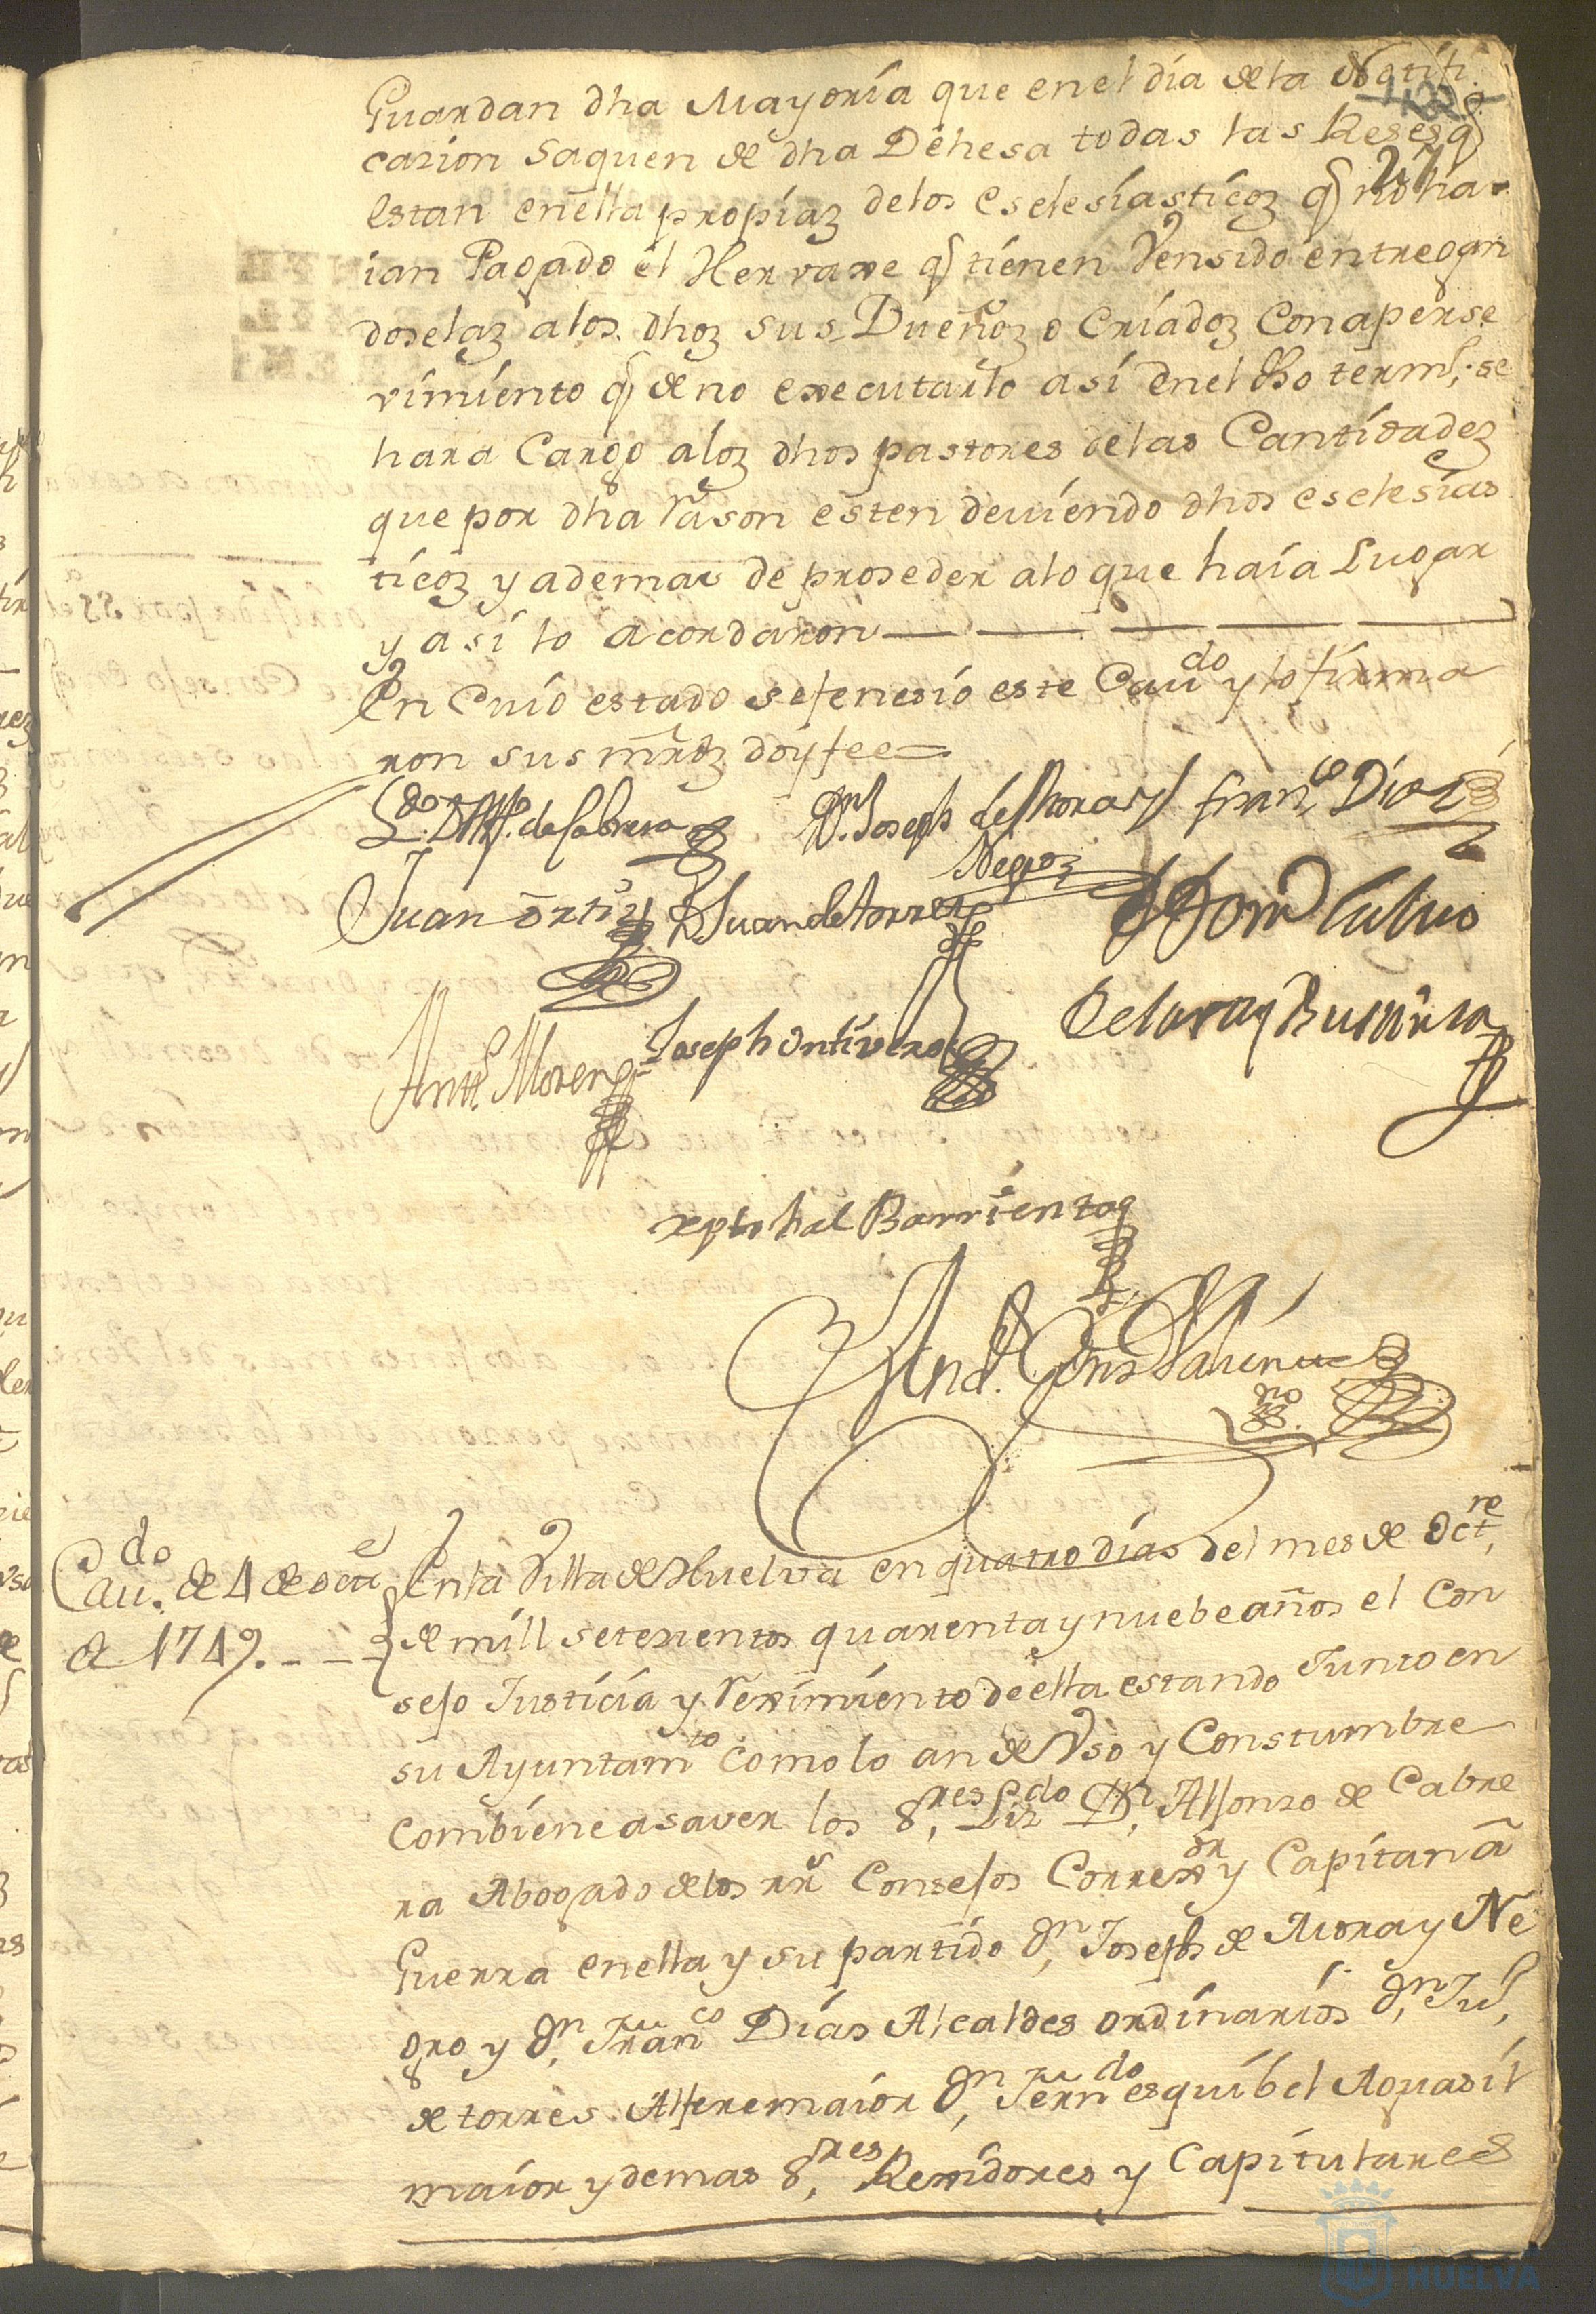 Guardan dha Mayoría que en el día de la Notifi
cazion saquen de dha Dehesa todas las Reses q
27
estan en ella propiaz de los eselesiasticoz q no ha
ian Pagado el Hervaxe q tienen Vensido entregan
doselaz a los dhoz sus Dueñoz o Criadoz con aperse
vimiento q de no executarlo así en el dho term.º se
hara Cargo aloz dhos pastores de las Cantidadez
que por dha rason esten deviendo dhos eselesias
ticoz y ademas de proseder a lo que haía Lugar
y así lo acordaron
En Cuío estado se fenesió este Caudo y lo firma
ron sus mrdz doy fee
Ldo Dn Alfo. de Cabrera Dn. Joseph de Mora y franco Diaz
Negro
Juan Ortiz Juan de torres
Antto. Moreno Joseph Ontivero
xptobal Barrientos
Caudo. de 4 de octe
de 1749.
En la Villa de Huelva en quatro días del mes de Octre,
de mill setezientos quarenta y nuebe años el Con
sejo Justicia y Reximiento de ella estando Junto en
su Ayuntamto como lo an de Vso y Constumbre
combiene a saver los Sres, Lizdo Dn, Alfonzo de Cabre
ra Abogado de los rrs Consejos Correxor y Capitan a
Guerra en ella y su partido Dn, Joseph de Mora y Ne
gro y Dn, Franco Días Alcaldes ordinarios Dn, Jun,
de torres Alferemaior Dn, Ferndo esquibel Aguasil
maior y demas Sres, Rexidores y Capitulares
HUELVA